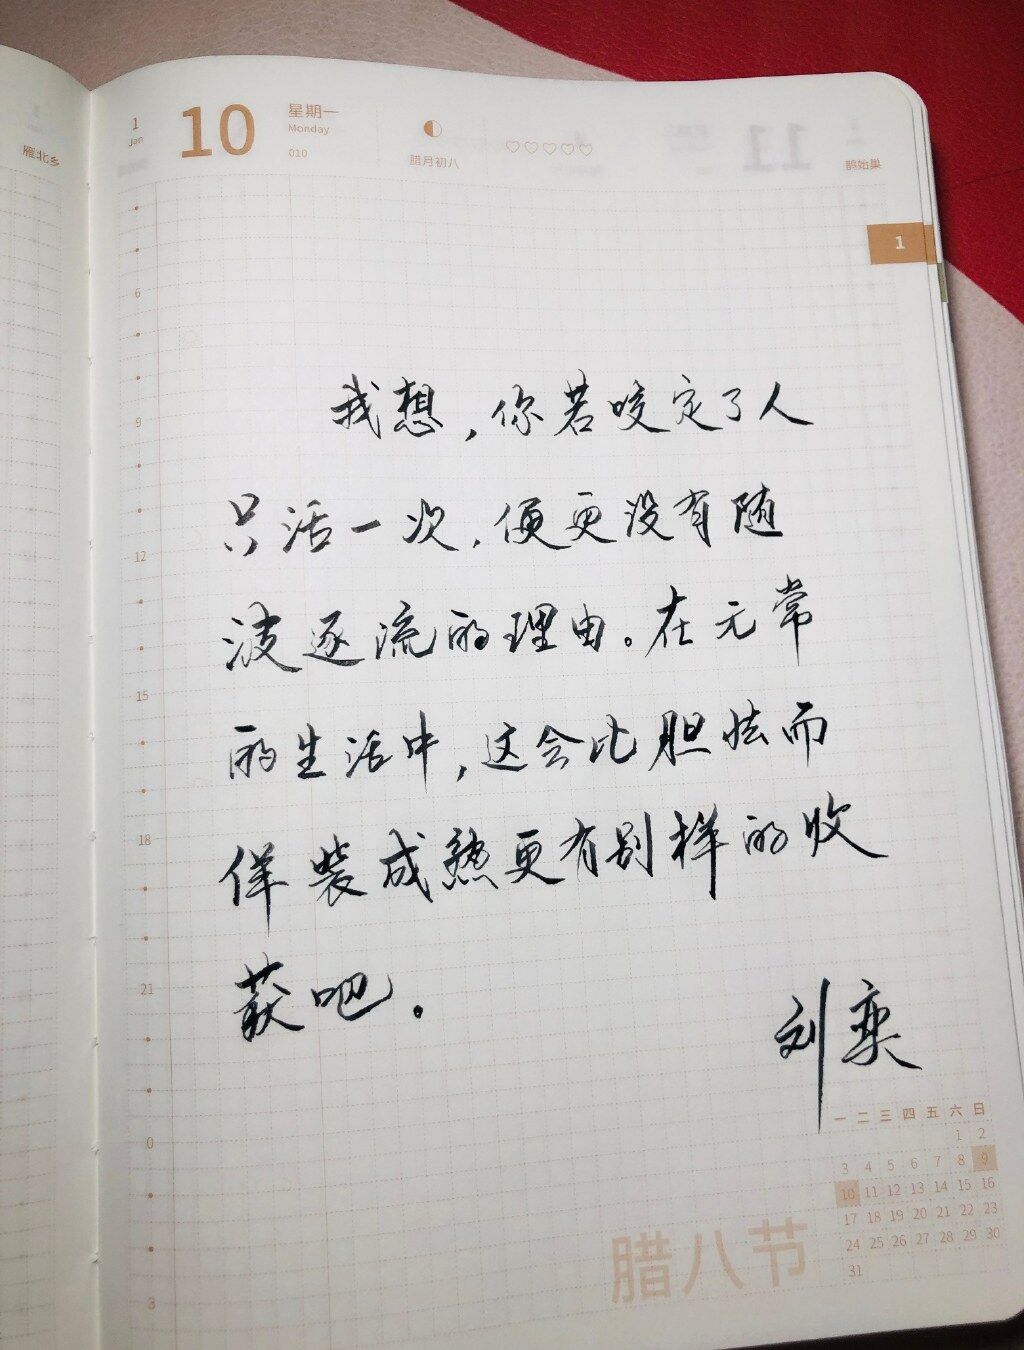 雁北乡
1
Jan
10
星期一
Monday
010
腊月初八
♡♡♡♡♡
11
鹊始巢
1
6
9
12
15
18
21
0
3
我想，你若咬定了人
只活一次，便更没有随
波逐流的理由。在无常
的生活中，这会比胆怯而
佯装成熟更有别样的收
获吧。
刘奕
一 二 三 四 五 六 日
1 2
3 4 5 6 7 8 9
10 11 12 13 14 15 16
17 18 19 20 21 22 23
24 25 26 27 28 29 30
31
腊八节